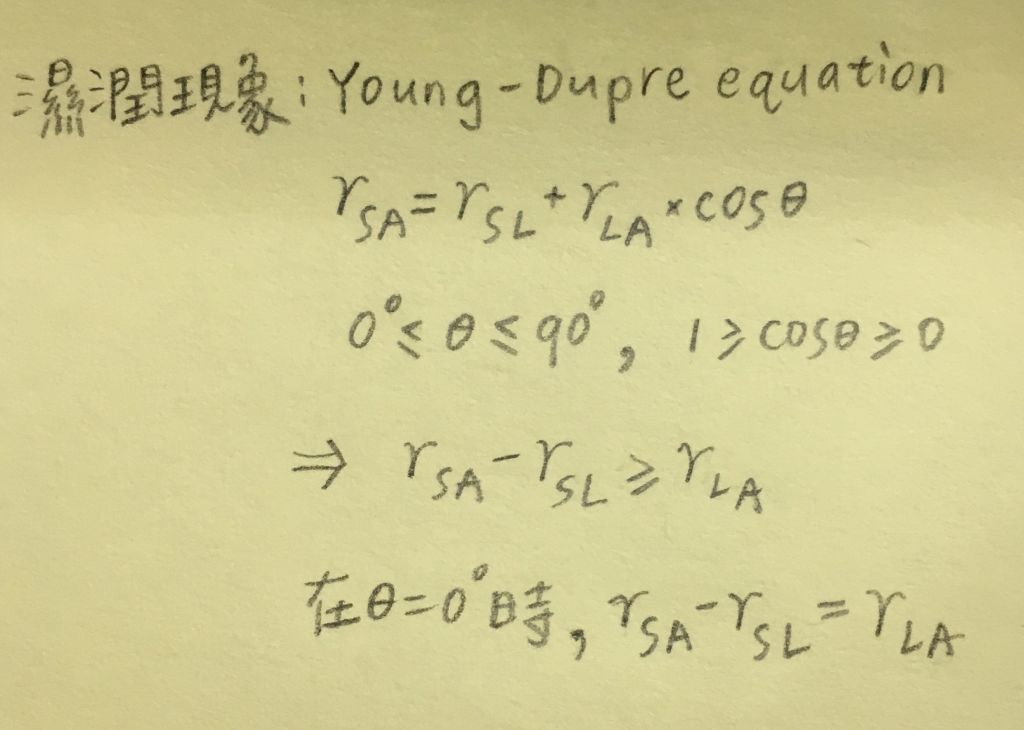 濕潤現象：Young-Dupre equation
γSA = γSL + γLA × cosθ
0° ≤ θ ≤ 90°, 1 ≥ cosθ ≥ 0
⇒ γSA - γSL ≥ γLA
在θ=0°時, γSA - γSL = γLA